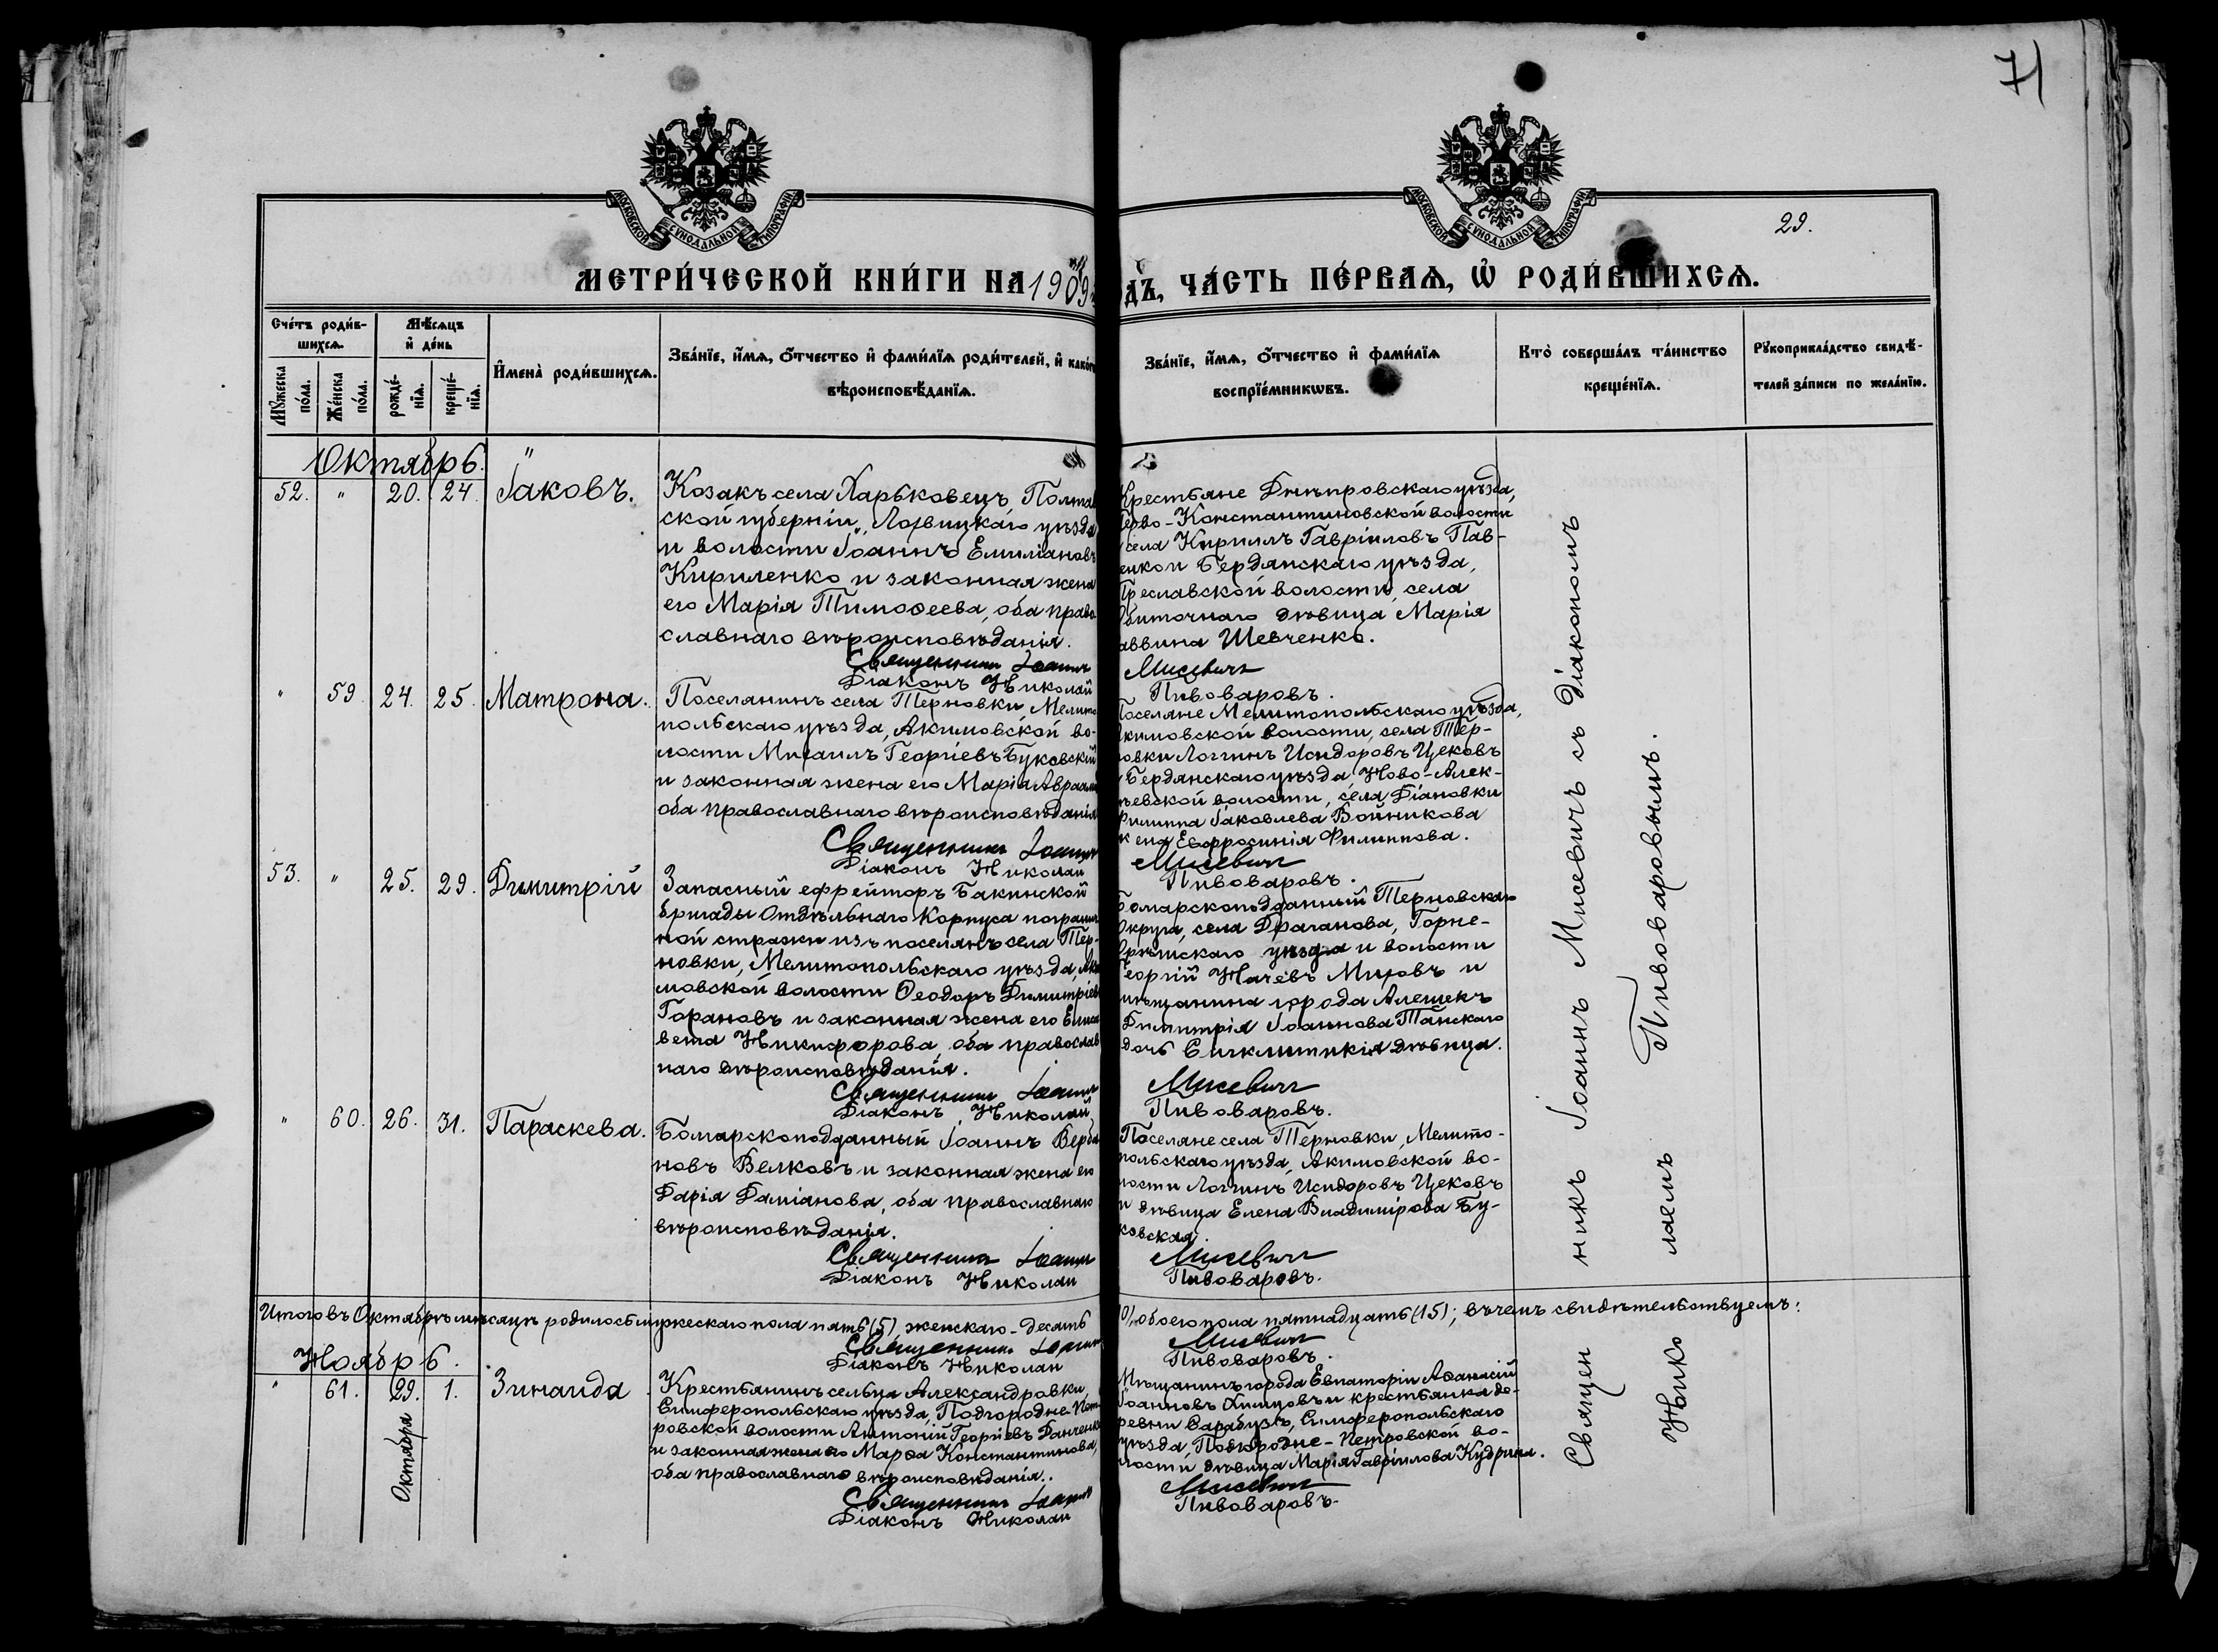 71
29.
МОСКОВСКОЙ СѴНОДАЛЬНОЙ ТИПОГРАФІИ
МОСКОВСКОЙ СѴНОДАЛЬНОЙ ТИПОГРАФІИ
МЕТРИ́ЧЕСКОЙ КНИ́ГИ НА 1909
ДЪ, ЧА́СТЬ ПЕ́РВАѦ, Ѡ҆ РОДИ́ВШИХСѦ.
Сче́тъ роди́в-
шихсѧ.
Мѣ́сѧцъ
и҆ де́нь
Мꙋ́жеска
по́ла.
Же́нска
по́ла.
рожде́-
нїѧ.
креще́-
нїѧ.
И҆мена̀ роди́вшихсѧ.
Зва́нїе, и҆́мѧ, о҆́тчество и҆ фами́лїѧ роди́телей, и҆ како́г
вѣроисповѣ́данїѧ.
Зва́нїе, и҆́мѧ, о҆́тчество и҆ фами́лїѧ
воспрїе́мникѡвъ.
Кто̀ соверша́лъ та́инство
креще́нїѧ.
Рꙋкоприкла́дство свидѣ́-
телей за́писи по жела́нїю.
Октябрь.
52. " 20. 24. Іаковъ.
Козакъ села Харьковецъ Полтав
ской губерніи, Лохвицкаго уѣзда
и волости Іоаннъ Емиліановъ
Кириленко и законная жена
его Марія Тимоѳеева, оба право
славнаго вѣроисповѣданія.
Священникъ Іоаннъ
Діаконъ Николай
Крестьяне Днѣпровскаго уѣзда,
Перво-Константиновской волости
села Кириллъ Гавріиловъ Пав-
енко и Бердянскаго уѣзда,
Преславской волости, села
Обиточнаго дѣвица Марія
аввина Шевченко.
Мисевичъ
Пивоваровъ.
" 59. 24. 25. Матрона.
Поселянинъ села Терновки, Мелито
польскаго уѣзда, Акимовской во-
лости Михаилъ Георгіевъ Буковскій
и законная жена его Марія Авраам
оба православнаго вѣроисповѣданія
Священникъ Іоаннъ
Діаконъ Николай
Поселяне Мелитопольскаго уѣзда,
Акимовской волости, села Тер-
новки Логгинъ Исидоровъ Цековъ
Бердянскаго уѣзда, Ново-Алек-
ѣевской волости, села Діановки
Филиппа Іаковлева Войникова
жена Евфросинія Филиппова.
Мисевичъ
Пивоваровъ.
53. " 25. 29. Димитрій
Запасный ефрейторъ Бакинской
бригады Отдѣльнаго Корпуса погранич
ной стражи изъ поселянъ села Тер-
новки, Мелитопольскаго уѣзда, Аки
мовской волости Ѳеодоръ Димитріев
Горановъ и законная жена его Елиса
вета Никифорова, оба православ
наго вѣроисповѣданія.
Священникъ Іоаннъ
Діаконъ Николай
Болгарскоподданный Терновскаго
Округа, села Драганова, Горне-
Орѣшскаго уѣзда и волости
Георгій Начевъ Мицовъ и
мѣщанина города Алешекъ
Димитрія Іоаннова Танскаго
дочь Сигклитикія дѣвица.
Мисевичъ
Пивоваровъ.
" 60. 26. 31. Параскева.
Болгарскоподданный Іоаннъ Верба
новъ Велковъ и законная жена его
Дарія Даміанова, оба православнаго
вѣроисповѣданія.
Священникъ Іоаннъ
Діаконъ Николай
Поселяне села Терновки, Мелито-
польскаго уѣзда, Акимовской во-
лости Логгинъ Исидоровъ Цековъ
и дѣвица Елена Владимірова Бу-
ковская.
Мисевичъ
Пивоваровъ.
Итого въ Октябрѣ мѣсяцѣ родилось мужескаго пола пять (5), женскаго - десять
10, обоего пола пятнадцать (15); въ чемъ свидѣтельствуемъ:
Священникъ Іоаннъ
Діаконъ Николай
Мисевичъ
Пивоваровъ.
Ноябрь.
" 61. 29. 1. Зинаида
Октября
Крестьянинъ сельца Александровки,
Симферопольскаго уѣзда, Подгородне-Пет
ровской волости Антоній Георгіевъ Данченко
и законная жена его Марѳа Константинова,
оба православнаго вѣроисповѣданія.
Священникъ Іоаннъ
Діаконъ Николай
Мѣщанинъ города Евпаторіи Аѳанасій
Іоанновъ Химовъ и крестьянка де-
ревни Сарабузъ, Симферопольскаго
уѣзда, Подгородне-Петровской во-
лости дѣвица Марія Гавріилова Кудрина.
Мисевичъ
Пивоваровъ.
Священникъ Іоаннъ Мисевичъ съ діакономъ
Николаемъ Пивоваровымъ.